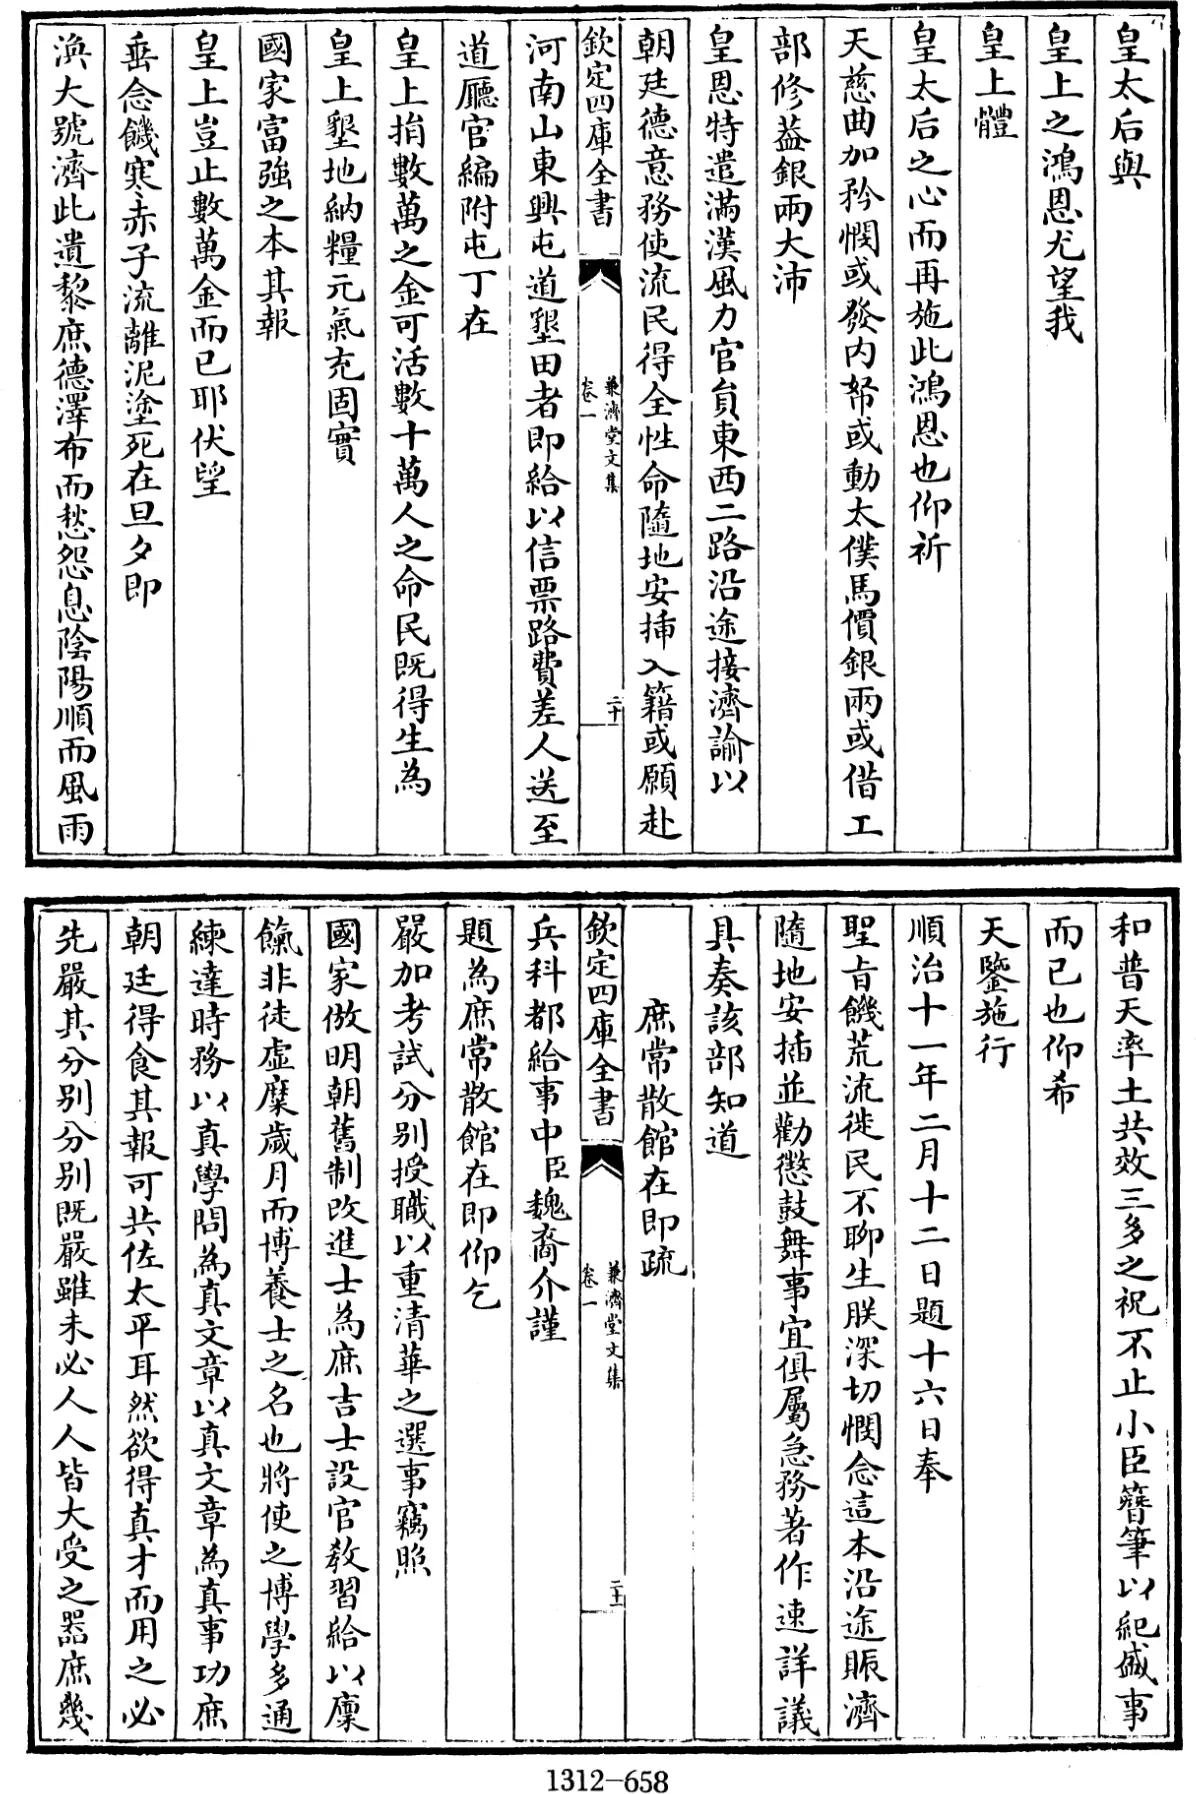 皇太后與
皇上之鴻恩尤望我
皇上體
皇太后之心而再施此鴻恩也仰祈
天慈曲加矜憫或發内帑或動太僕馬價銀兩或借工
部修葢銀兩大沛
皇恩特遣滿漢風力官員東西二路沿途接濟諭以
朝廷德意務使流民得全性命隨地安揷入籍或願赴
欽定四庫全書
兼濟堂文集
卷一
二十
河南山東興屯道墾田者即給以信票路費差人送至
道廳官編附屯丁在
皇上捐數萬之金可活數十萬人之命民既得生為
皇上墾地納糧元氣充固實
國家富強之本其報
皇上豈止數萬金而已耶伏望
垂念饑寒赤子流離泥塗死在旦夕即
渙大號濟此遺黎庶德澤布而愁怨息陰陽順而風雨
和普天率土共效三多之祝不止小臣簪筆以紀盛事
而已也仰希
天鑒施行
順治十一年二月十二日題十六日奉
聖㫖饑荒流徙民不聊生朕深切憫念這本沿途賑濟
隨地安插並勸懲鼓舞事宜俱屬急務著作速詳議
具奏該部知道
庶常散館在即疏
欽定四庫全書
兼濟堂文集
卷一
二十一
兵科都給事中臣魏裔介謹
題為庶常散館在即仰乞
嚴加考試分别授職以重清華之選事竊照
國家倣明朝舊制改進士為庶吉士設官教習給以廩
餼非徒虚糜歲月而博養士之名也將使之博學多通
練達時務以真學問為真文章以真文章為真事功庶
朝廷得食其報可共佐太平耳然欲得真才而用之必
先嚴其分别分别既嚴雖未必人人皆大受之器庶幾
1312-658